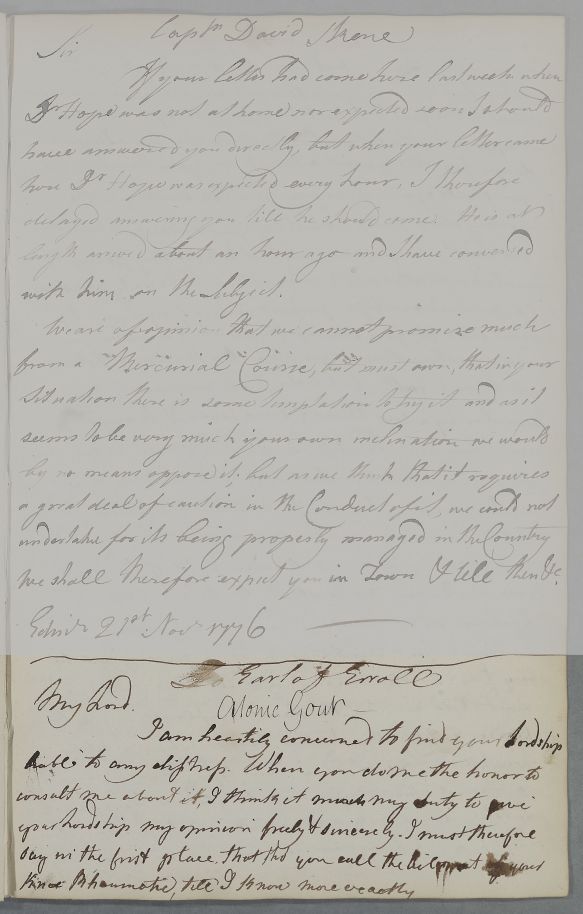 Captn David Skene
Sir
If your letter had come here last week when
Dr Hope was not at home nor expected soon I should
have answered you directly, but when your letter came
here Dr Hope was expected every hour, I therefore
delayed answering you till he should come. He is at
length arrived about an hour ago and I have conversed
with him on the Subject.
We are of opinion that we cannot promise much
from a Mercurial Course, but must own, that in your
Situation there is some temptation to try it and as it
seems to be very much your own inclination we would
by no means oppose it; but as we think that it requires
a great deal of caution in the Conduct of it, we could not
undertake for its being properly managed in the Country
We shall therefore expect you in Town & till then &c.
Edinr 21st Novr 1776
To Earl of Erroll
Atonic Gout
My Lord.
I am heartily concerned to find your Lordship
liable to any distress. When you do me the honor to
consult me about it, I think it much my duty to give
your Lordship my opinion freely & sincerely. I must therefore
say in the first place, that tho you call the your
Knee Rheumatic, till I know more exactly